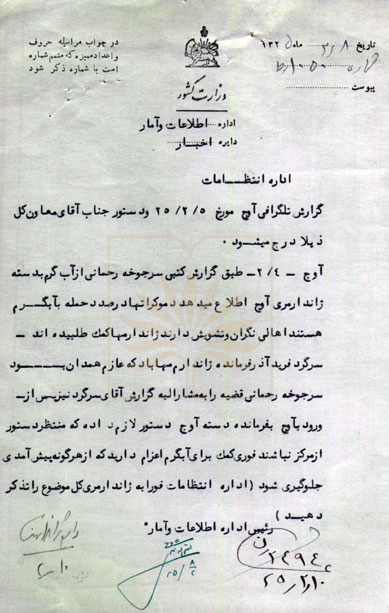 در جواب مراسیله حروف
و اعداد ممیزه که متمم شماره
است با شماره ذکر شود
تاریخ ۸ ماه ۱۳۲۵
شماره
پیوست
وزارت کشور
اداره اطلاعات و آمار
دایره اخبار
اداره انتظامات
گزارش تلگرافی آوج مورخ ۲۵/۲/۵ و دستور جناب آقای معاون کل
ذیلا درج میشود .
آوج – ۲/۴ – طبق گزارش کتبی سرجوخه رحمانی از آب گرم بدسته
ژاندارمری آوج اطلاع میدهد دموکراتها در صدد حمله بآبگرم
هستند اهالی نگران و تشویش دارند ژاندارمها کمک طلبیده اند –
سرگرد فرید آذر فرمانده ژاندارم مهاباد که عازم همدان بود
سرجوخه رحمانی قضیه را به مشارالیه گزارش آقای سرگرد نیز پس از –
ورود بآوج بفرمانده دسته آوج دستور لازم داده که منتظر دستور
از مرکز نباشند فوری کمک برای آبگرم اعزام دارید که از هرگونه پیش آمدی
جلوگیری شود ( اداره انتظامات فورا به ژاندارمری کل موضوع را تذکر
دهید )
رئیس اداره اطلاعات و آمار
۲۴۹۴
۲۵/۲/۱۰